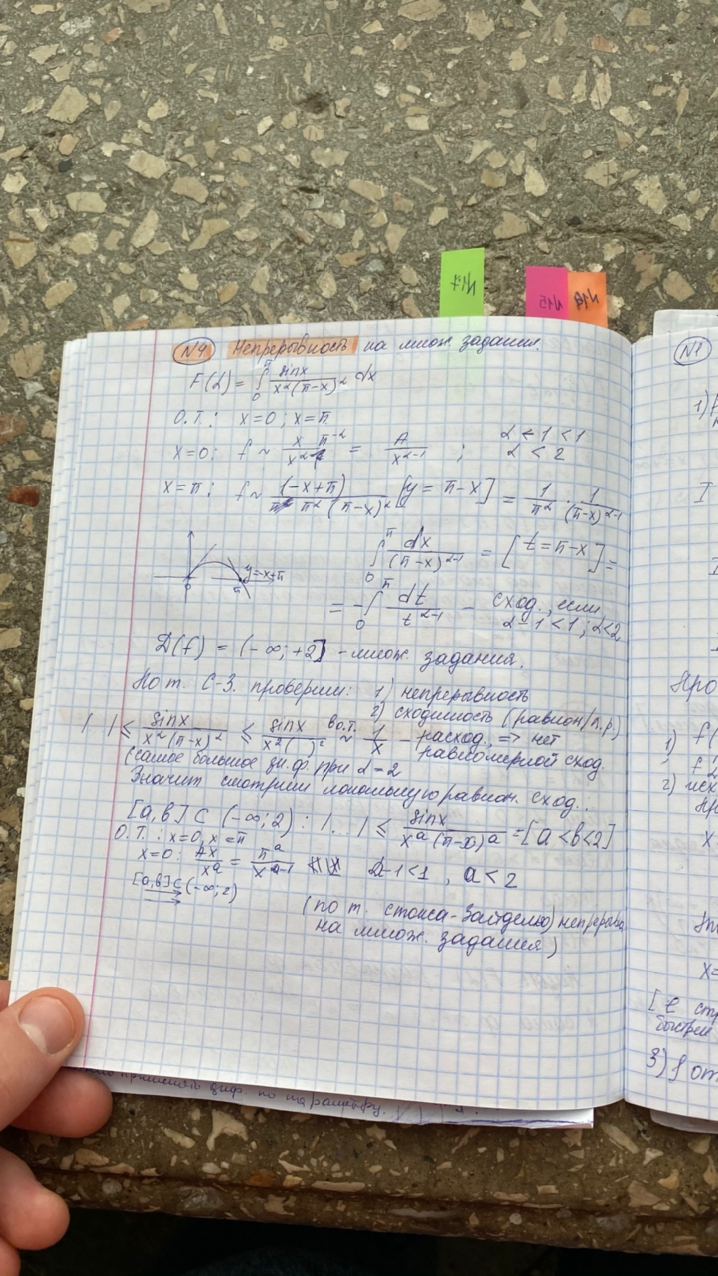 N17
N15
N18
N4 Непрерывность на множ. задания.
F(α) = ∫₀^π sinx / (x^α (π-x)^α) dx
О.Т.: x=0; x=π
x=0: f ~ x π^-α / x^α = A / x^(α-1) ; α-1<1
α<2
x=π: f ~ (-x+π) / (π^α (π-x)^α) [y=π-x] = 1/π^α · 1/(π-x)^(α-1)
∫₀^π dx / (π-x)^(α-1) = [t=π-x] =
y=-x+π
0 π
= -∫₀^π dt / t^(α-1) - сход., если
α-1<1; α<2
D(f) = (-∞; +2) - множ. задания.
По т. С-З. проверим: 1) непрерывность
2) сходимость (равном/л.р)
| | ≤ sinx / (x^2 (π-x)^2) ≤ sinx / (x^2 ( )^2) в о.т. ~ 1/x - расход. => нет
равномерной сход.
(самое большое зн. ф при α=2
Значит смотрим локальную равном. сход..
[a,b] ⊂ (-∞; 2) : |...| ≤ sinx / (x^a (π-x)^a) = [a<b<2]
О.Т.: x=0, x=π
x=0: Ax / x^a = π^a / x^(a-1) α-1<1, a<2
[a,b] ⊂ (-∞; 2)
(по т. Стокса-Зайделю) непрерывна
на множ. задания)
N1
1)
Про
1) f(
2) исх
x=
[ в
быстрей
3) f от
применять диф. по параметру.